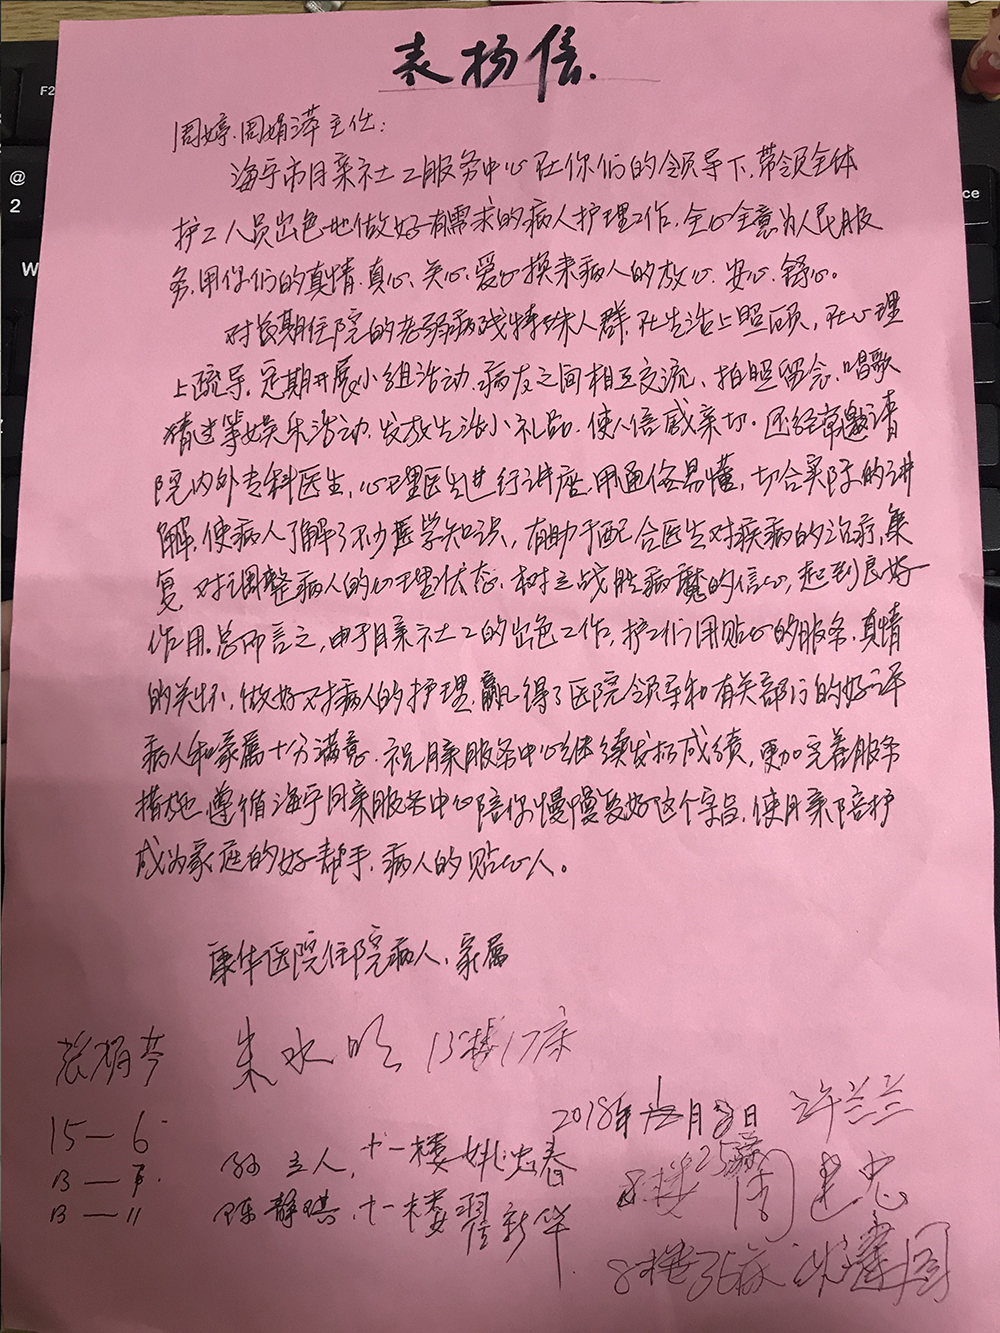 表扬信.
周婷.周娟萍主任:
海宁市月亲社工服务中心在你们的领导下,带领全体
护工人员出色地做好有需求的病人护理工作,全心全意为人民服
务,用你们的真情、真心、关心、爱心换来病人的放心、安心、舒心。
对长期住院的老弱病残特殊人群,在生活上照顾,在心理
上疏导,定期开展小组活动,病友之间相互交流、拍照留念、唱歌
猜迷等娱乐活动,发放生活小礼品,使人倍感亲切。还经常邀请
院内外专科医生,心理医生进行讲座,用通俗易懂,切合实际的讲
解,使病人了解了不少医学知识,有助于配合医生对疾病的治疗,康
复,对调整病人的心理状态,树立战胜病魔的信心,起到良好
作用。总而言之,由于月亲社工的出色工作,护工们用贴心的服务,真情
的关怀,做好对病人的护理,赢得了医院领导和有关部门的好评
病人和家属十分满意.祝月亲服务中心继续发扬成绩,更加完善服务
措施,遵循海宁月亲服务中心陪你慢慢变好这个宗旨,使月亲陪护
成为家庭的好帮手,病人的贴心人。
康华医院住院病人、家属
朱水明 13楼17床
2018年 月 日 许兰兰
15—6
十一楼姚忠春
13—11 陈静琪.十一楼翟新华
8楼25床 周建忠
8楼36床